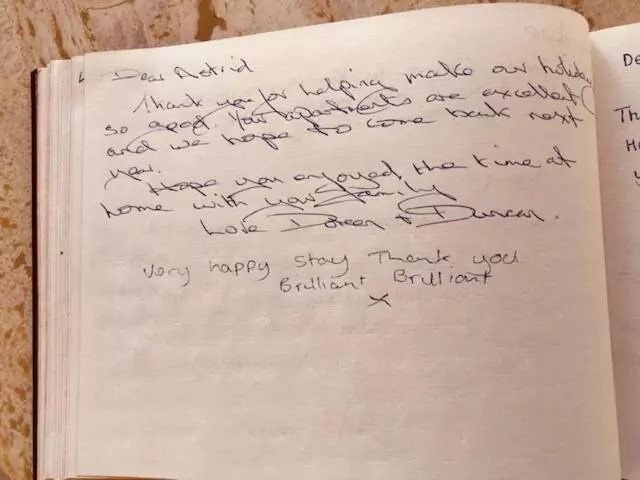 Dear Astrid
Thank you for helping make our holiday
so good. Your apartments are excellent
and we hope to come back next
year.
Hope you enjoyed the time at
home with your family
Love Doreen + Duncan.
Very happy stay Thank you
Brilliant Brilliant
X
De
Th
Ha
y